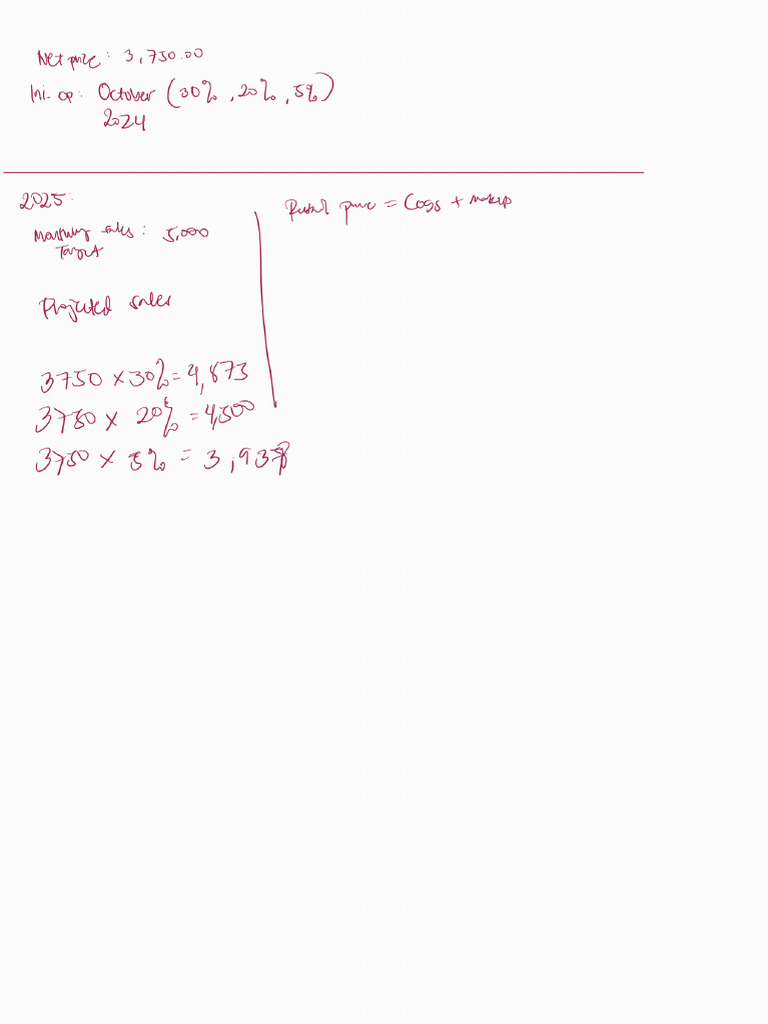 Net price: 3,750.00
Ini- op: October (30%, 20%, 5%)
2024
2025:
Monthly sales: 5,000
Target
Projected sales
3750 x 30% = 4,873
3750 x 20% = 4,500
3750 x 5% = 3,938
Retail price = COGS + markup